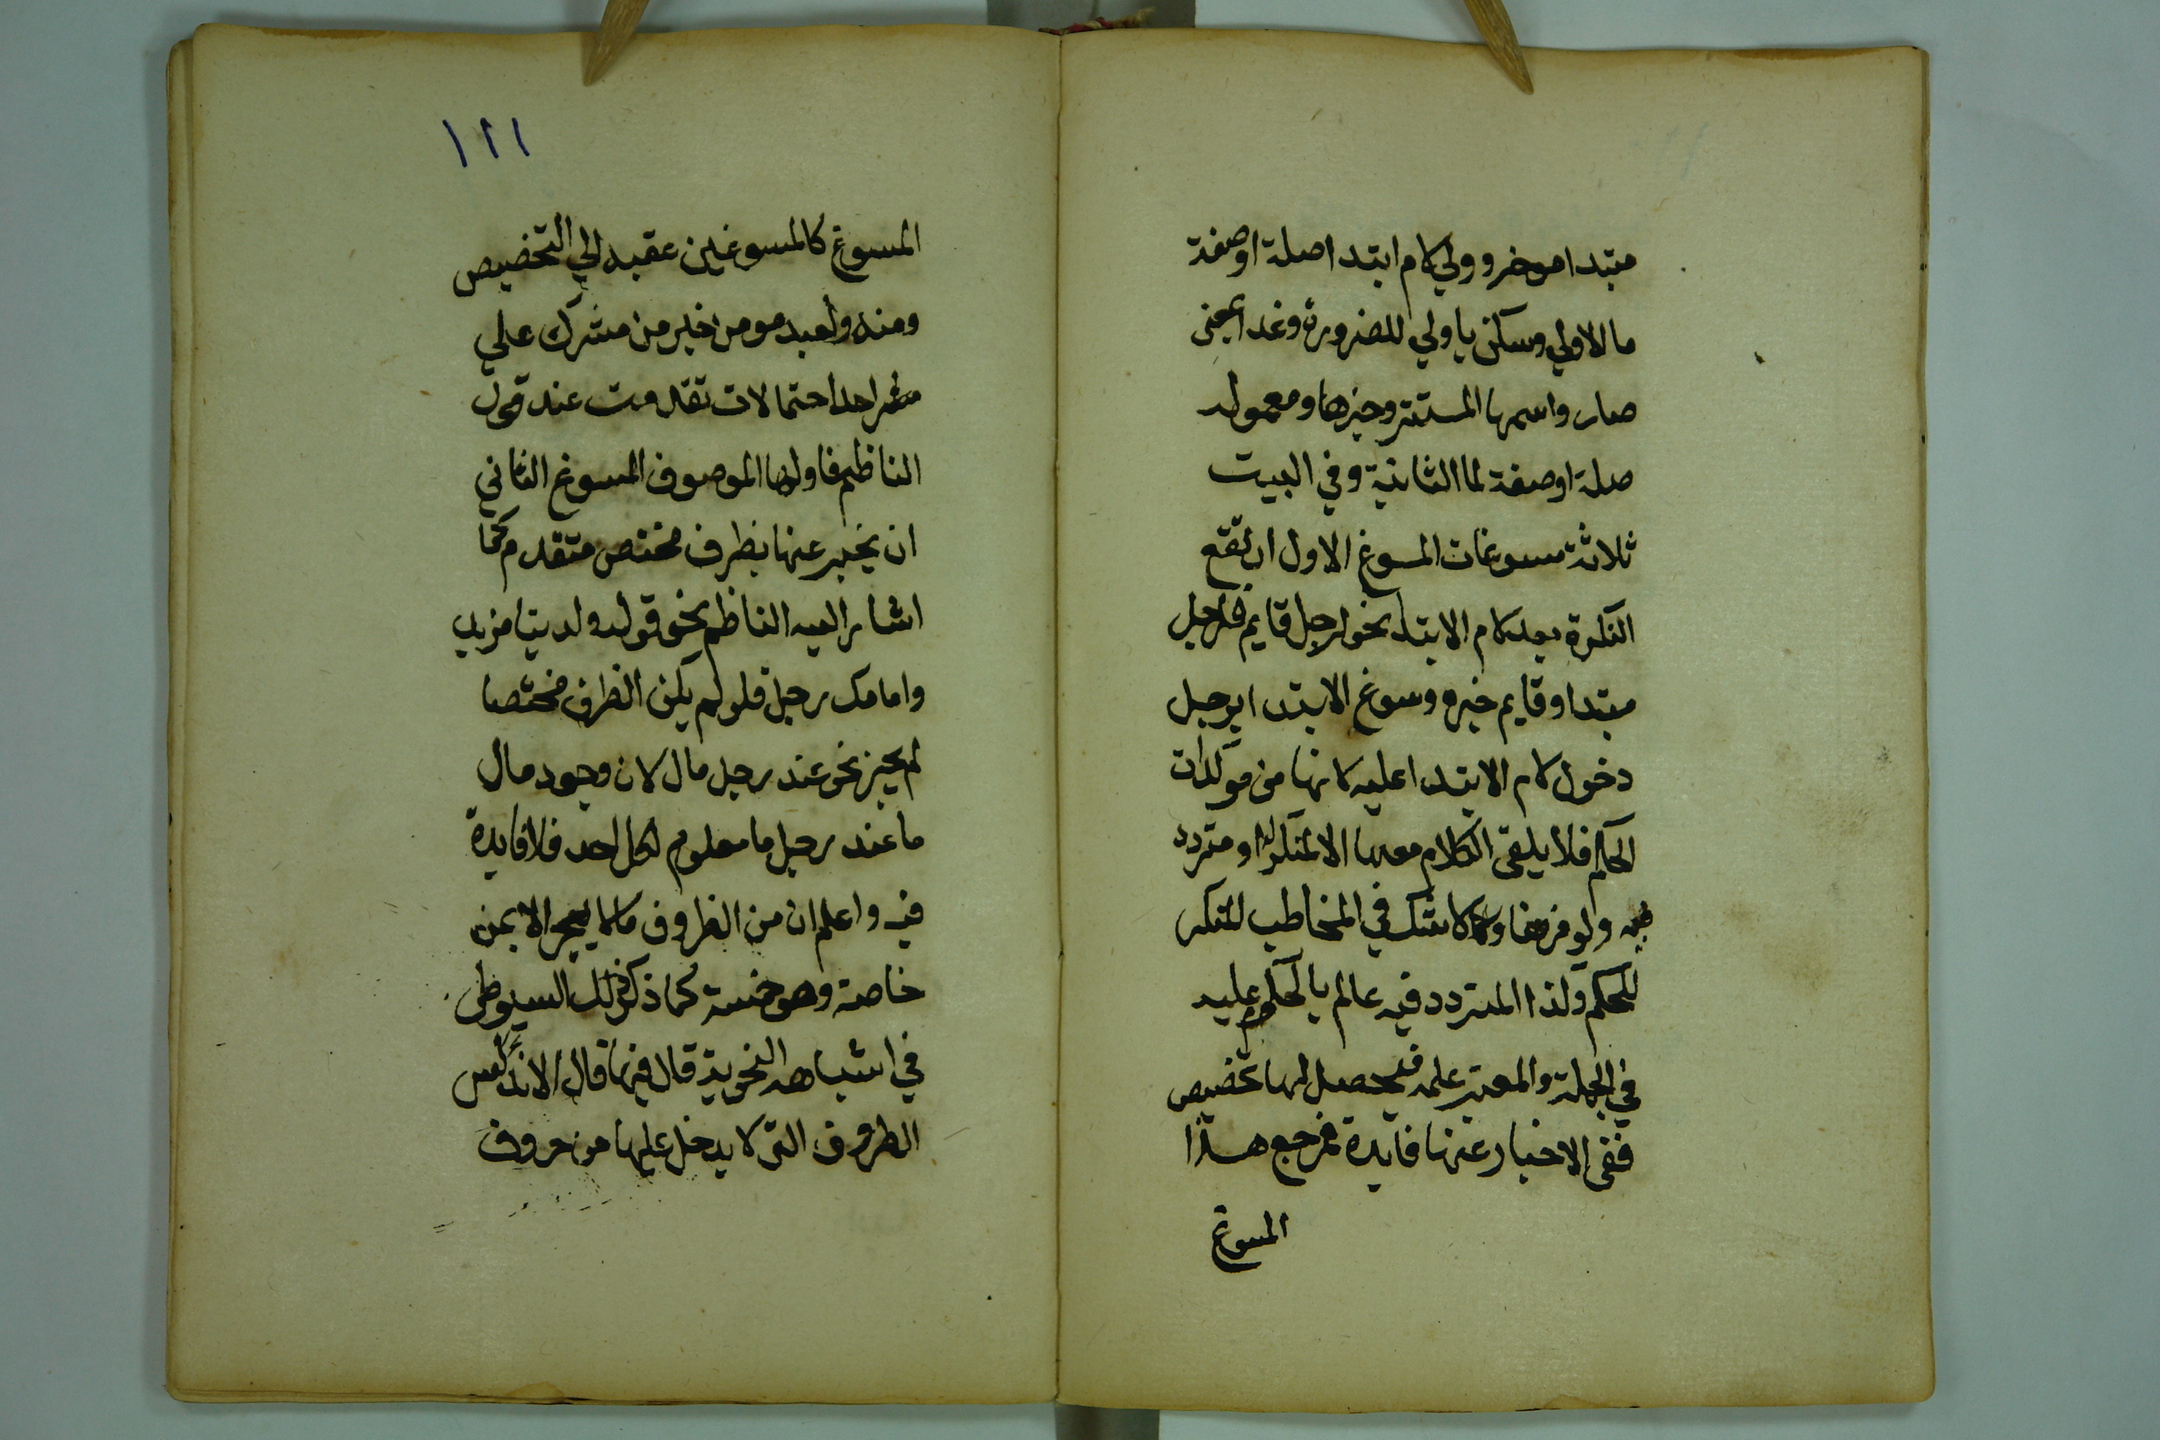 مبتدا موخر وولي لام ابتدا صلة اوصفة
ما الاولي وسكن يا ولي للضرورة وغدا بمعني
صار واسمها المستتر وخبرها ومعموله
صلة اوصفة لما الثانية وفي البيت
ثلاثة مسوغات المسوغ الاول ان تقع
النكرة بعد لام الابتدا نحو لرجل قايم فلرجل
مبتدا وقايم خبره وسوغ الابتدا برجل
دخول لام الابتدا عليه لانها من موكدات
الحكم فلا يلقي الكلام معها الا لمنكر له او متردد
فيه ولو فرضا ولا شك في المخاطب المنكر
للحكم وكذا المتردد فيه عالم بالمحكوم عليه
في الجملة والمعتبر علمه فيحصل لها تخصيص
ففي الاخبار عنها فايدة فمرجع هذا
المسوغ
١٢١
المسوغ كالمسوغين عقبه الي التخصيص
ومنه ولعبد مومن خير من مشرك علي
احد احتمالات تقدمت عند قول
الناظم فاولها الموصوف المسوغ الثاني
ان يخبر عنها بظرف مختص متقدم كما
اشار اليه الناظم بنحو قوله ولدينا مزيد
وامامك رجل فلو لم يكن الظرف مختصا
لم يجز نحو عند رجل مال لان وجود مال
ما عند رجل ما معلوم لكل احد فلا فايدة
فيه واعلم ان من الظروف مالا يجر الا بمن
خاصة وهو خمسة كما ذكر ذلك السيوطي
في اشباهه النحوية قال فيها قال الاندلسي
الظروف التي لا يدخل عليها من حروف